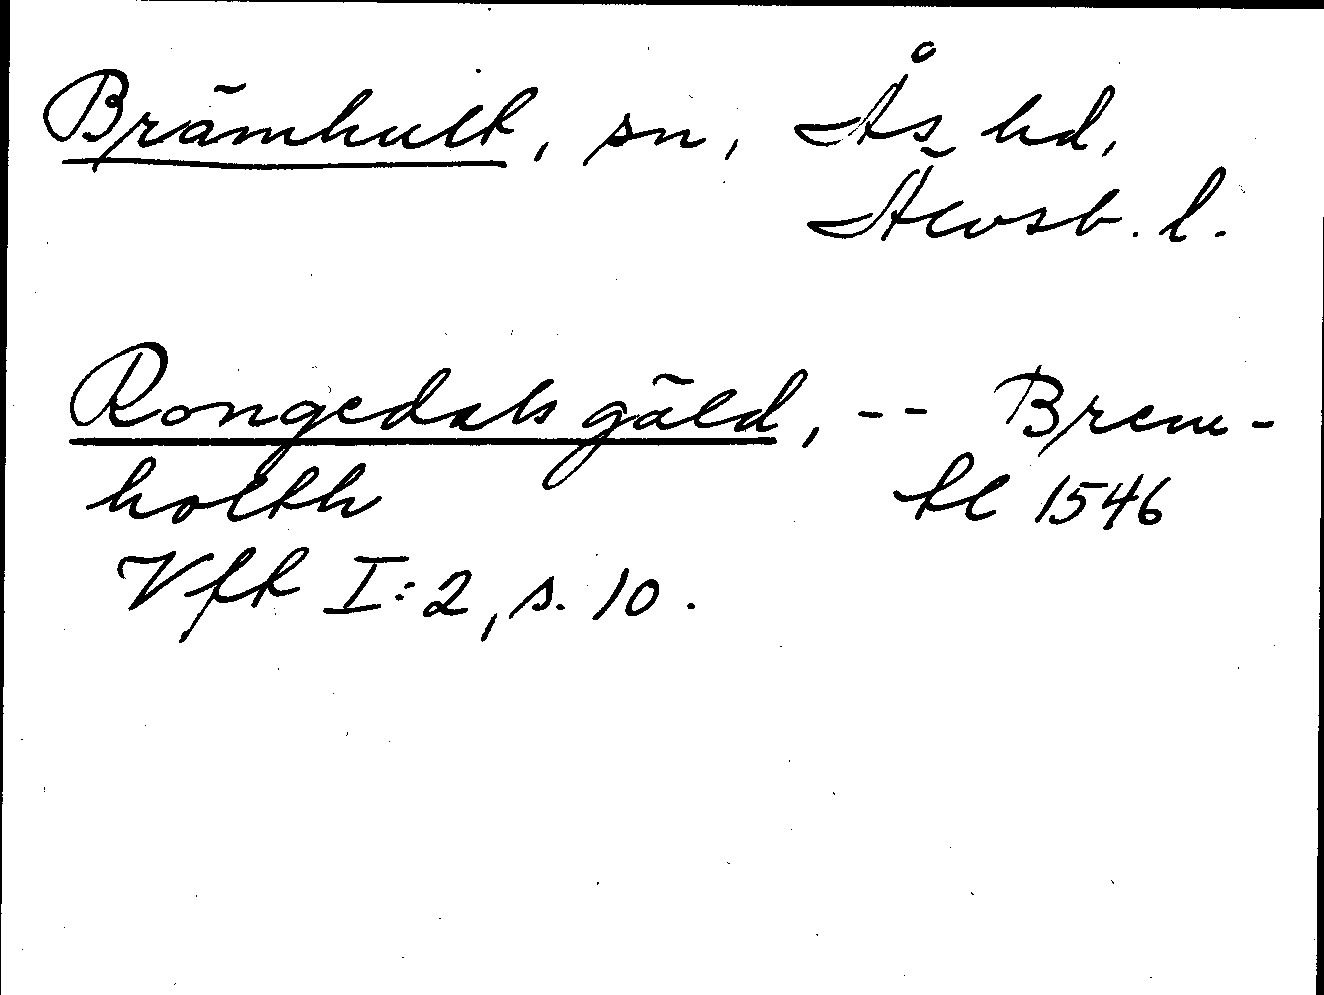 Brämhult, sn, Ås hd,
Älvsb. l.
Rongedals gäld, -- Brem-
holth tl 1546
Vft I:2, s. 10.